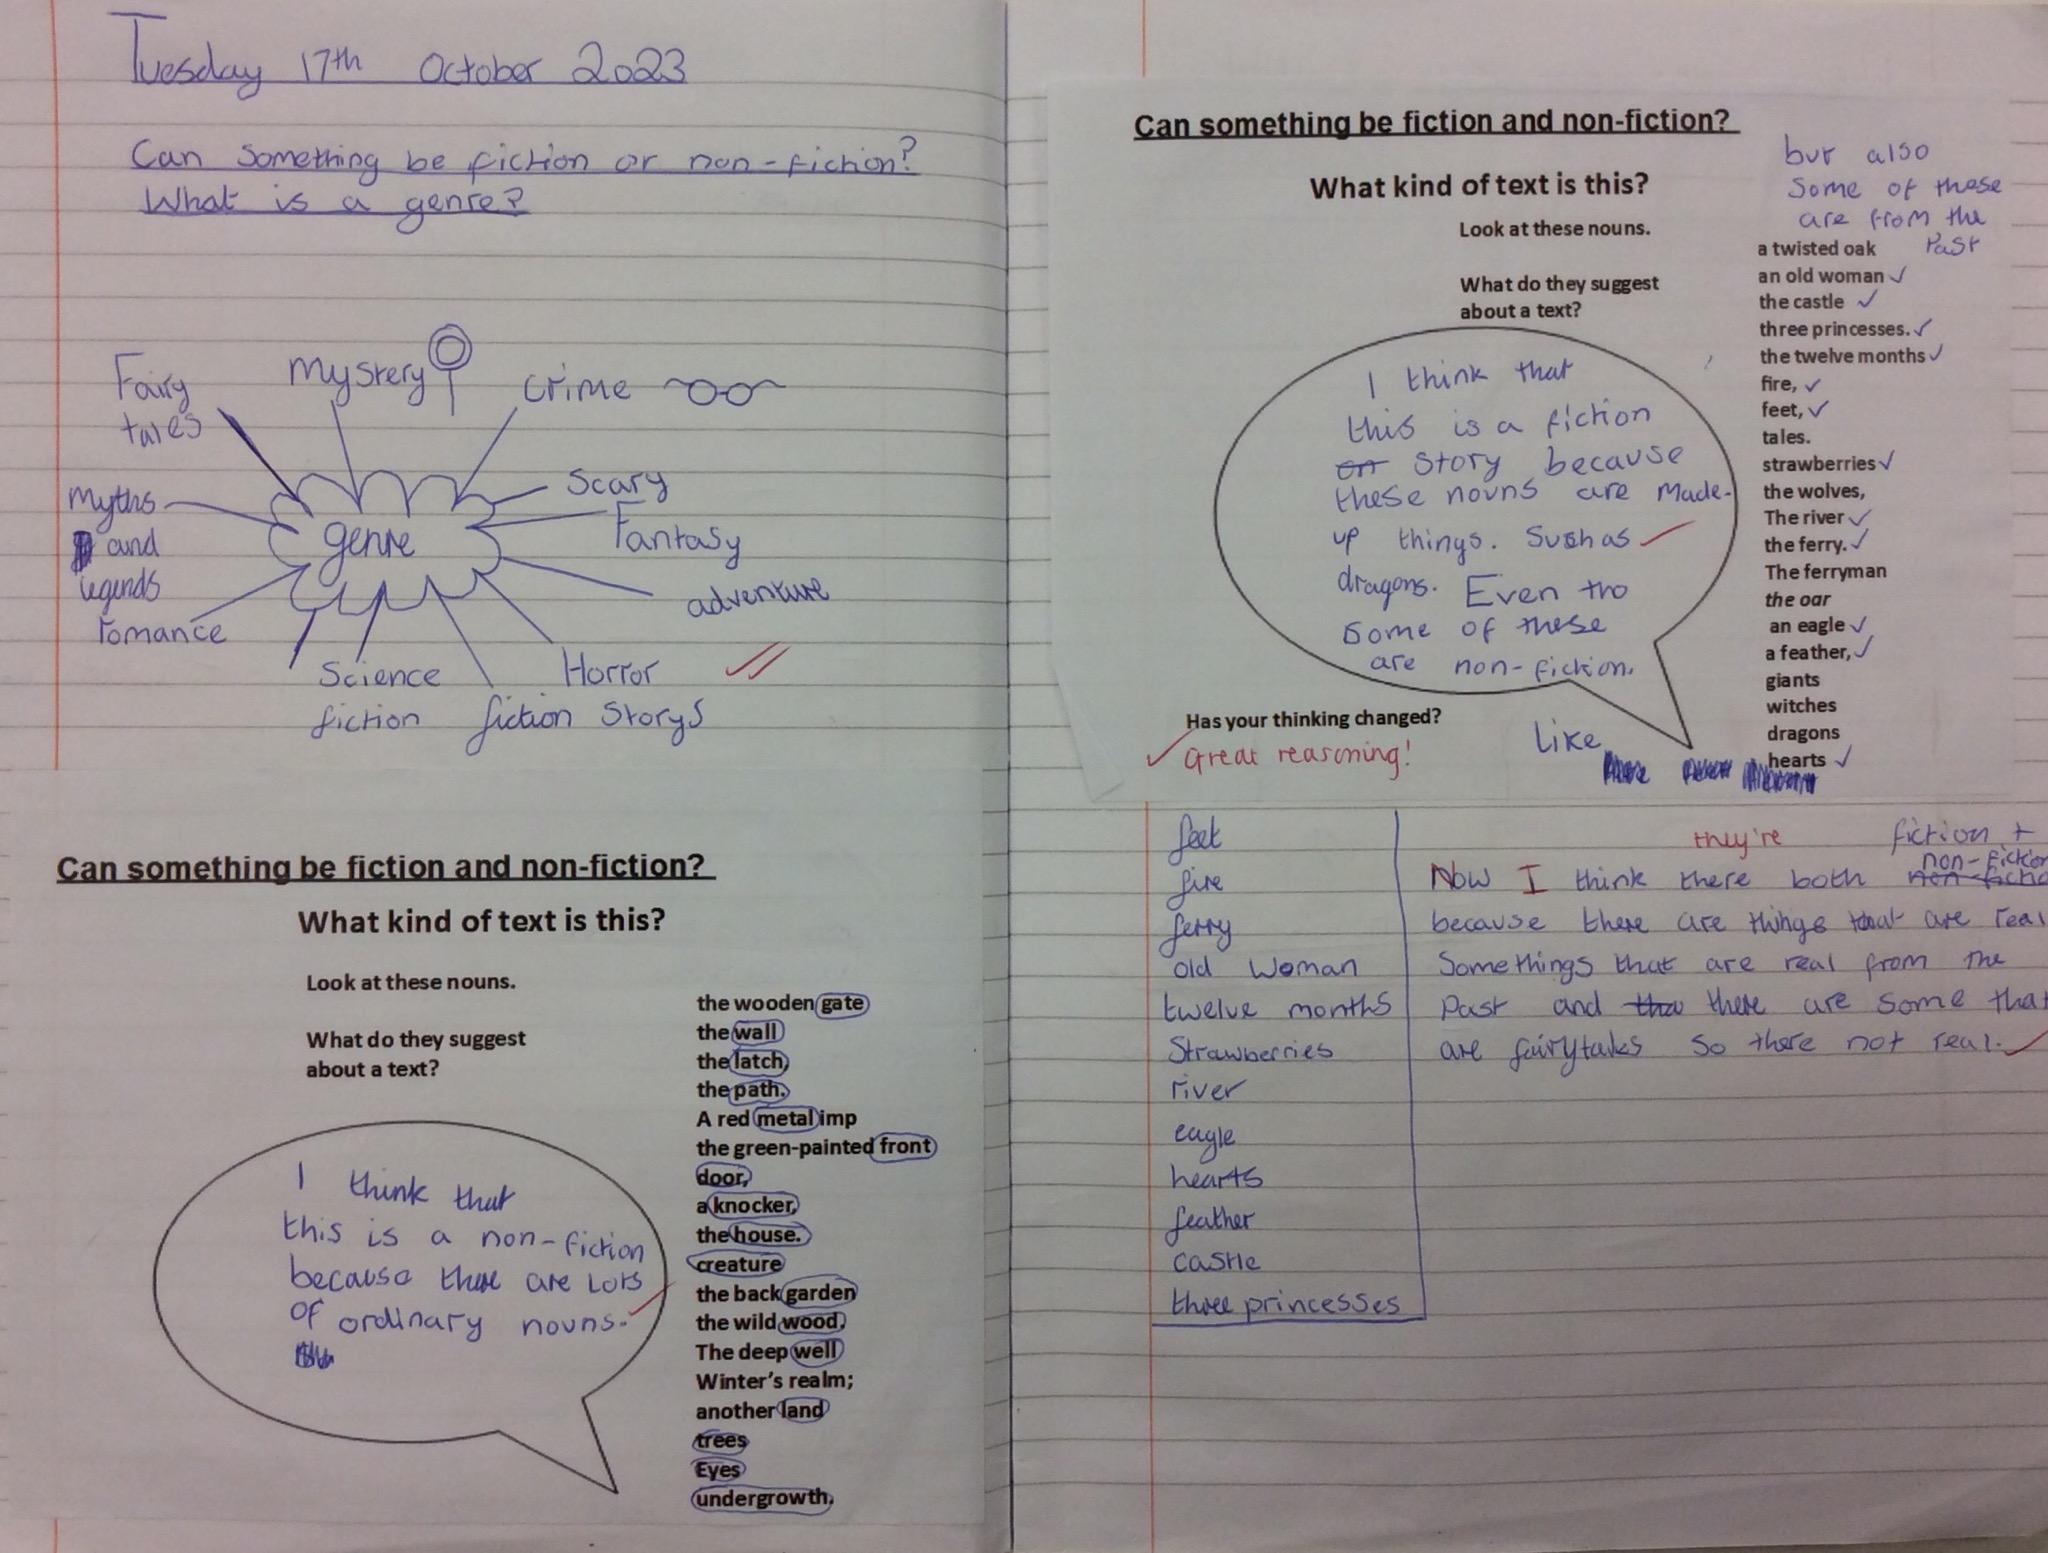 Tuesday 17th October 2023
Can something be fiction or non-fiction?
What is a genre?
Fairy
tales
Mystery
Crime
Scary
Fantasy
adventure
Horror
fiction Storys
Science
fiction
romance
Myths
and
legends
genre
Can something be fiction and non-fiction?
What kind of text is this?
Look at these nouns.
What do they suggest
about a text?
I think that
this is a non-fiction
because there are Lots
of ordinary nouns.
the wooden gate
the wall
the latch,
the path.
A red metal imp
the green-painted front
door,
a knocker,
the house.
creature
the back garden
the wild wood,
The deep well
Winter's realm;
another land
trees
Eyes
undergrowth.
Can something be fiction and non-fiction?
What kind of text is this?
Look at these nouns.
What do they suggest
about a text?
I think that
this is a fiction
story because
these nouns are made-
up things. Such as
dragons. Even tho
some of these
are non-fiction.
but also
some of these
are from the
Past
a twisted oak
an old woman
the castle
three princesses.
the twelve months
fire,
feet,
tales.
strawberries
the wolves,
The river
the ferry.
The ferryman
the oar
an eagle
a feather,
giants
witches
dragons
hearts
Has your thinking changed?
Great reasoning!
Like
feet
fire
ferry
old woman
twelve months
Strawberries
river
eagle
hearts
feather
castle
three princesses
they're fiction +
non-fiction
Now I think there both non-fictio
because there are things that are real
Somethings that are real from the
Past and there are some that
are fairytales so there not real.